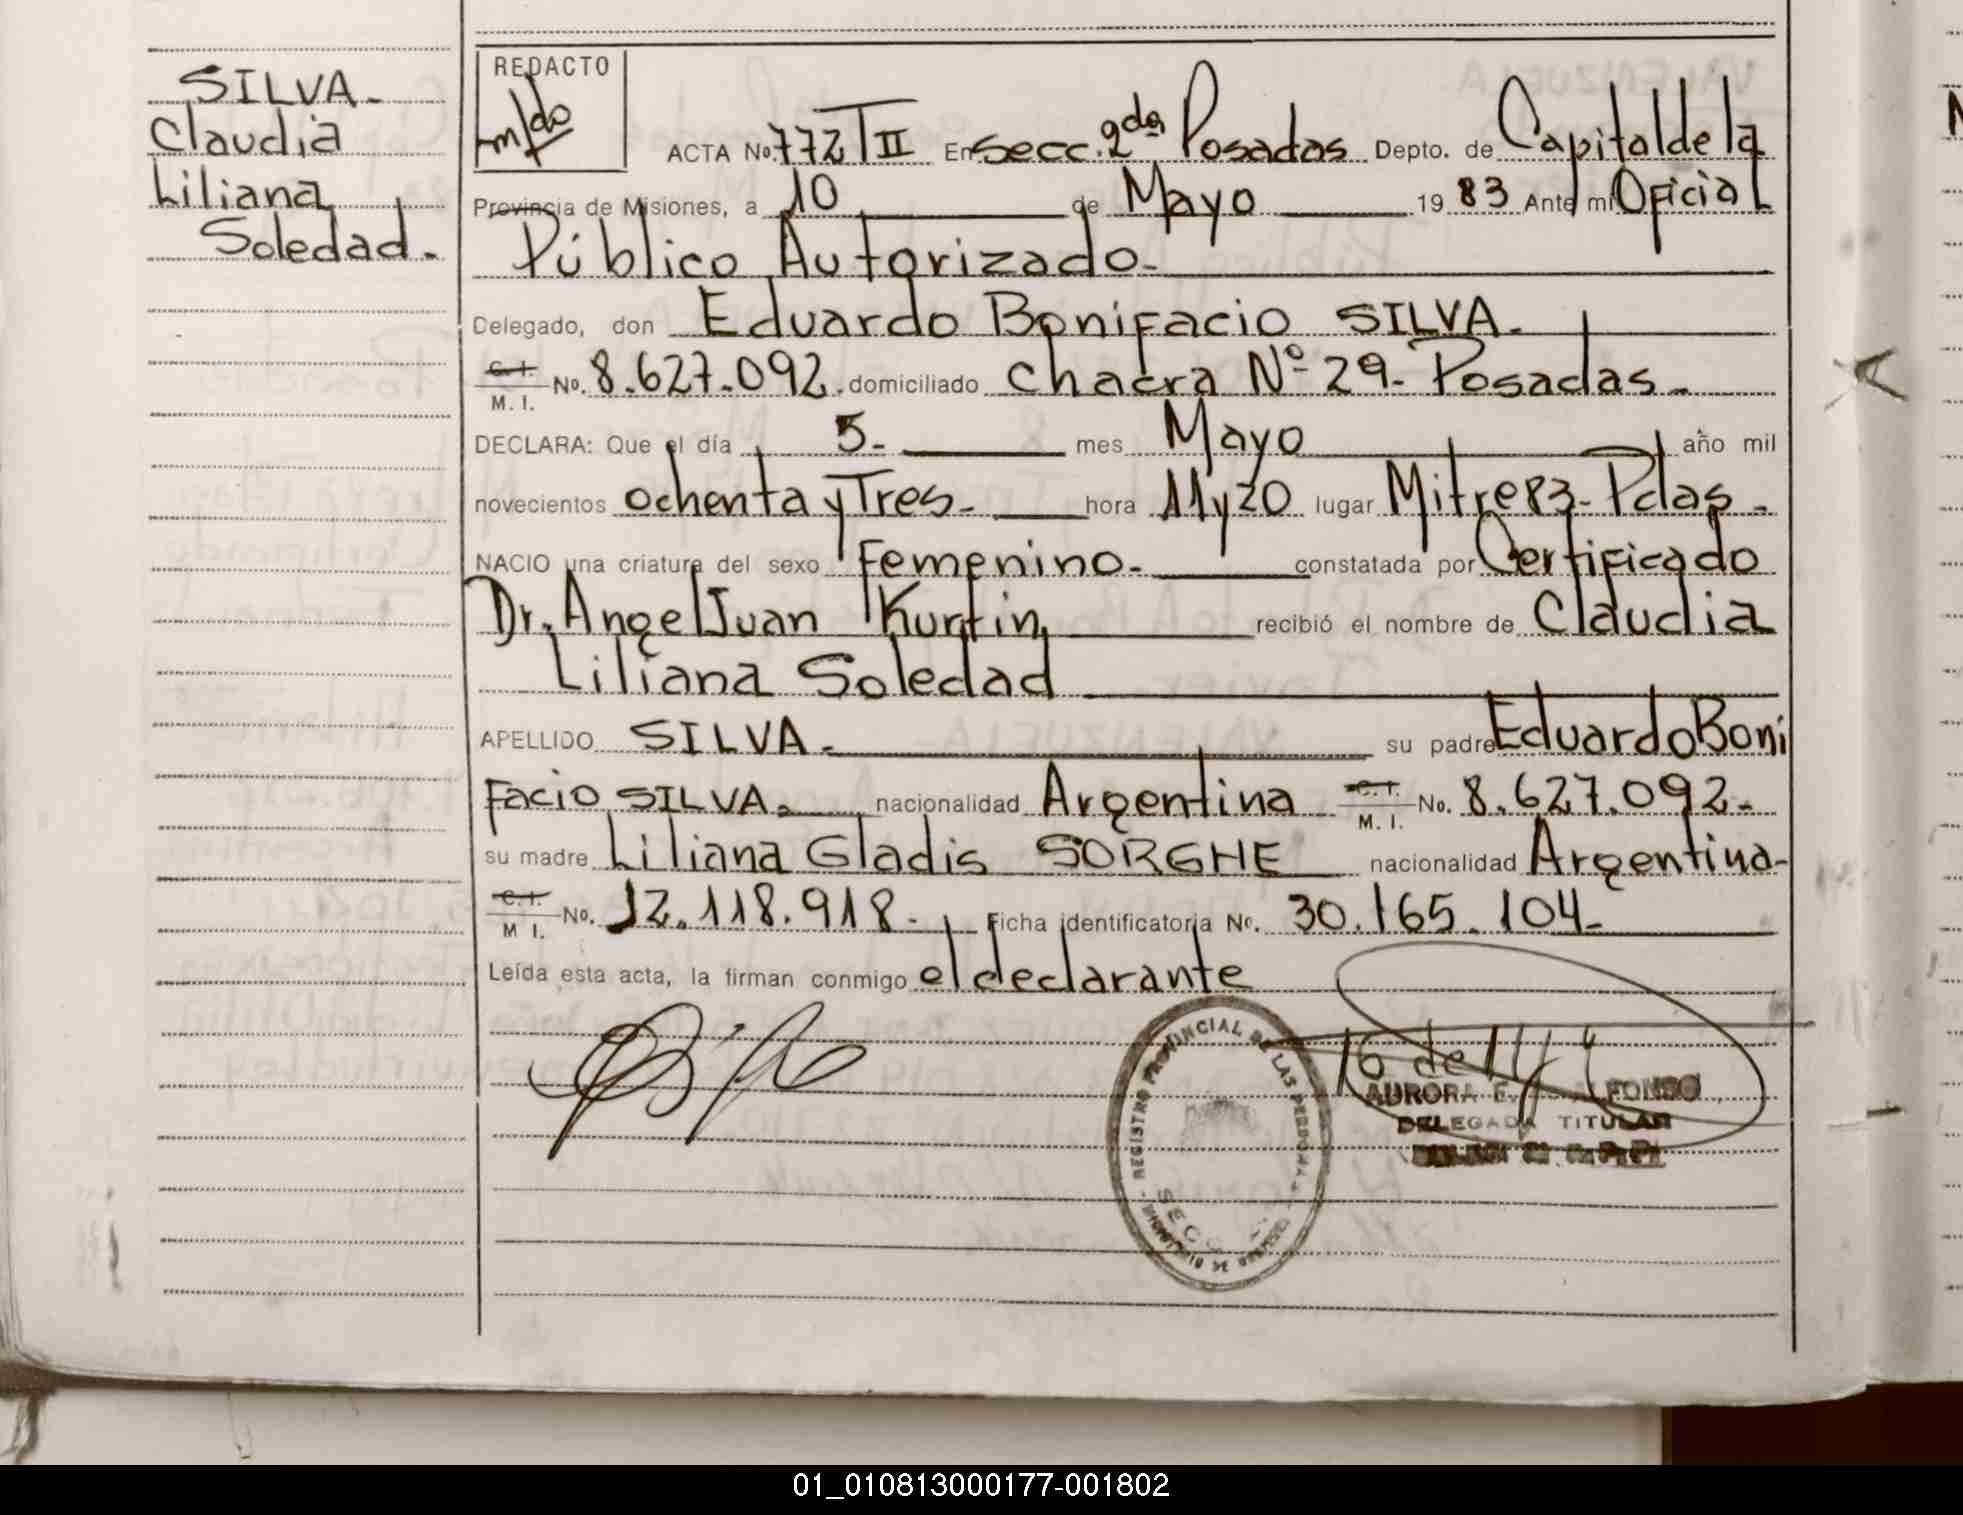 SILVA-
Claudia
Liliana
Soledad.
REDACTO
m/do
ACTA No. 772 T II En Secc. 2da Posadas Depto. de Capital de la
Provincia de Misiones, a 10 de Mayo 1983 Ante mi Oficial
Público Autorizado-
Delegado, don Eduardo Bonifacio SILVA-
C. I.
M. I. No. 8.627.092. domiciliado Chacra Nº 29- Posadas-
DECLARA: Que el día 5- mes Mayo año mil
novecientos ochenta y Tres- hora 11 y 20 lugar Mitre 83- Pdas-
NACIO una criatura del sexo Femenino- constatada por Certificado
Dr. Angel Juan Kurtin, recibió el nombre de Claudia
Liliana Soledad
APELLIDO SILVA- su padre Eduardo Boni
Facio SILVA- nacionalidad Argentina C. I. M. I. No. 8.627.092-
su madre Liliana Gladis SORGHE nacionalidad Argentina-
C. I.
M I. No. 12.118.918- Ficha identificatoria No. 30.165.104-
Leída esta acta, la firman conmigo el declarante
REGISTRO PROVINCIAL DE LAS PERSONAS
SECC
AURORA E. ALFONSO
DELEGADA TITULAR
01_010813000177-001802